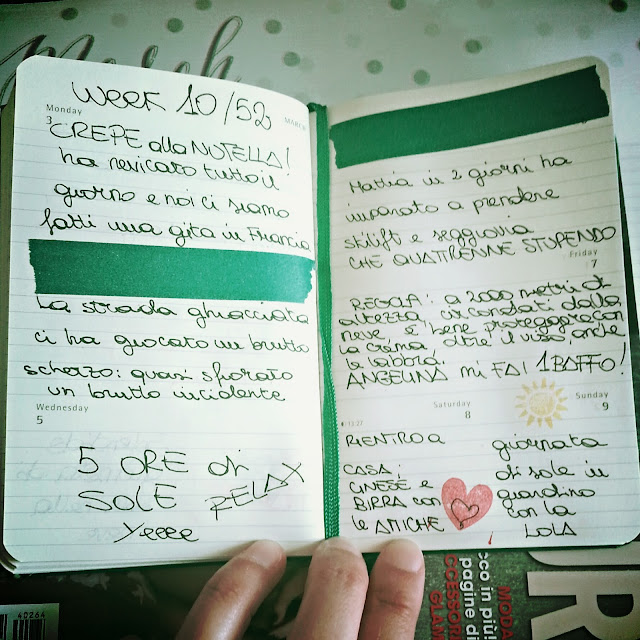 March
WEEK 10/52
Monday
3
MARCH
CREPE alla NUTELLA!
ha nevicato tutto il
giorno e noi ci siamo
fatti una gita in Francia
La strada ghiacciata
ci ha giocato un brutto
scherzo: quasi sfiorato
un brutto incidente
Wednesday
5
5 ORE di
SOLE RELAX
Yeeee
Mattia in 2 giorni ha
imparato a prendere
skilift e seggiovia
CHE QUATTRENNE STUPENDO
Friday
7
REGOLA: a 2000 metri di
altezza, circondati dalla
neve, è bene proteggere con
la crema, oltre il viso, anche
le labbra.
ANGELINA mi FAI 1 BAFFO!
Saturday
8
13:27
RIENTRO A
CASA:
CINESE e
BIRRA con
le AMICHE
Sunday
9
giornata
di sole in
giardino
con la
LOLA
40264
MOD
cco in più
pagine di
CCESSOR
GLAM